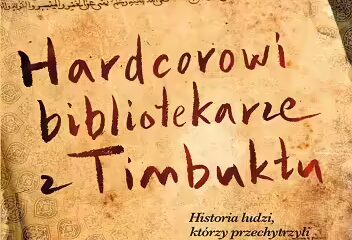 Hardcorowi
bibliotekarze
z Timbuktu
Historia ludzi,
którzy przechytrzyli